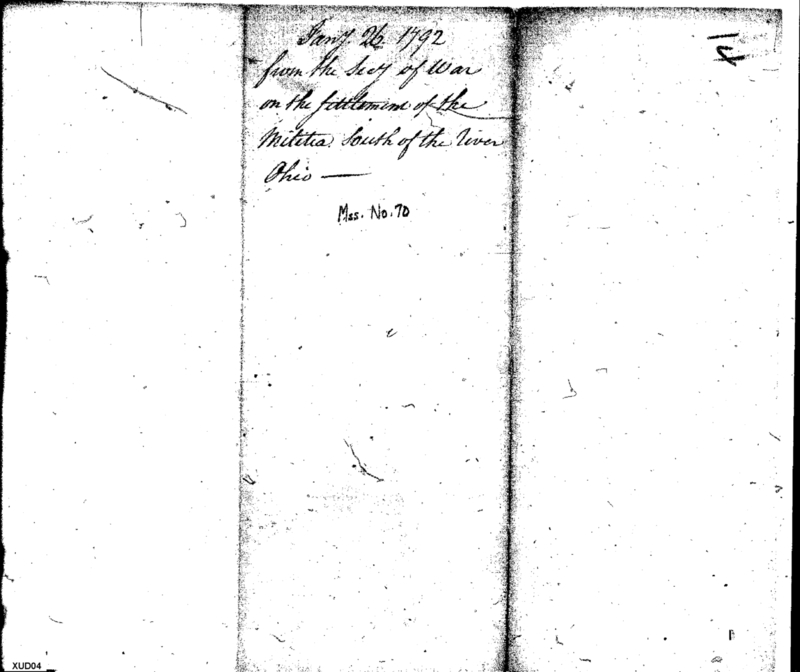 Jany. 26 1792
from the Secy of War
on the settlement of the
Militia South of the river
Ohio —
Mss. No. 70
XUD04